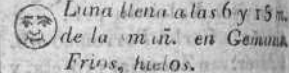 Luna llena a las 6 y 15 m.
de la mañ. en Geminis
Frios, hielos.